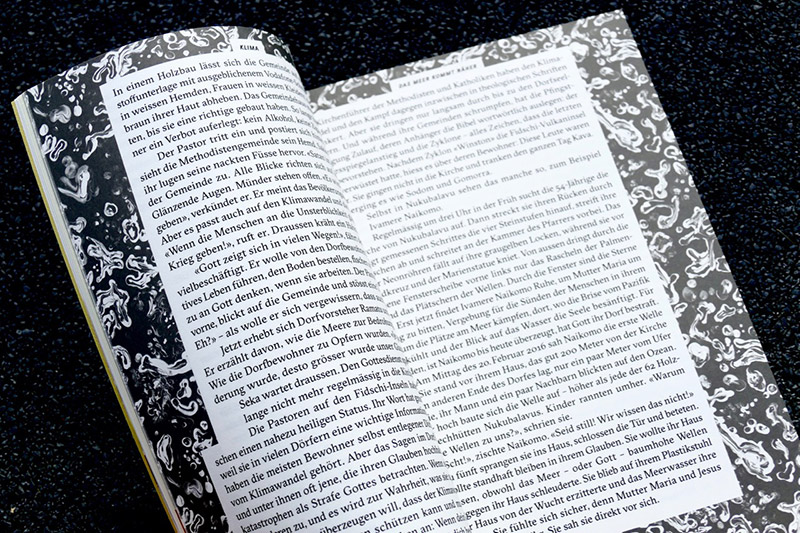 KLIMA
In einem Holzbau lässt sich die Gemeinde
stoffunterlage mit ausgeblichenem Vodafone
in weissen Hemden, Frauen in weissen
braun ihrer Haut abheben. Das Gemeinde
ten, bis sie eine richtige gebaut haben. So
ner ein Verbot auferlegt: kein Alkohol, kein
Der Pastor tritt ein und postiert sich
sieht die Methodistengemeinde sein Hemd
ihr lugen seine nackten Füsse hervor.
der Gemeinde zu. Alle Blicke richten sich
Glänzende Augen. Münder stehen offen.
geben», verkündet er. Er meint das Bevölke
Aber es passt auch auf den Klimawandel
«Wenn die Menschen an die Unsterblich
Krieg geben!», ruft er. Draussen kräht ein
«Gott zeigt sich in vielen Wegen!»,
vielbeschäftigt. Er wolle von den Dorfbewoh
tives Leben führen, den Boden bestellen, fisch
zu an Gott denken, wenn sie arbeiten. Der
vorne, blickt auf die Gemeinde und stösst
Eh?» – als wolle er sich vergewissern, dass
Jetzt erhebt sich Dorfvorsteher Rama
Er erzählt davon, wie die Meere zur Bedro
Wie die Dorfbewohner zu Opfern wurden,
derung wurde, desto grösser wurde unser
Seka wartet draussen. Den Gottesdienst
lange nicht mehr regelmässig in die Kirche
Die Pastoren auf den Fidschi-Inseln
schen einen nahezu heiligen Status. Ihr Wort hat
weil sie in vielen Dörfern eine wichtige Informati
haben die meisten Bewohner selbst entlegener Dör
vom Klimawandel gehört. Aber das Sagen im Dorf
und unter ihnen oft jene, die ihren Glauben hoch
katastrophen als Strafe Gottes betrachten. Wenn
deren zu, und es wird zur Wahrheit, was sie
überzeugen will, dass der Klima
schützen kann und
an: Wenn der
DAS MEER KOMMT NÄHER
führer der Methodisten und Katholiken haben den Klima-
wandel und den Kampf dagegen inzwischen in theologischen Schriften
Aber sie dringen nur langsam durch bis zu den Inselge-
Und während ihre Gemeinden schrumpfen, hat die Pfingst-
Zulauf, deren Anhänger die Bibel wortwörtlich auslegen, der
Meeresspiegelanstieg und die Zyklone – alles Zeichen, dass die letzten
Nachdem Zyklon «Winston» die Fidschi-Vulkaninsel
verwüstet hatte, hiess es über deren Bewohner: Diese Leute waren
Sie gingen nicht in die Kirche und tranken den ganzen Tag Kava.
ging es wie Sodom und Gomorra.
Selbst in Nukubalavu sehen das manche so, zum Beispiel
Ivamere Naikomo.
Regelmässig um drei Uhr in der Früh sucht die 54-Jährige die
von Nukubalavu auf. Dann streckt sie ihren Rücken durch
Schrittes die vier Steinstufen hinauf, streift ihre
ab und schreitet an der Kammer des Pfarrers vorbei. Das
Neonröhren fällt auf ihre graugelben Locken, während sie vor
Kreuz und der Marienstatue kniet. Von aussen dringt durch die
Fensterscheibe vorne links nur das Rascheln der Palmen-
das Plätschern der Wellen. Durch die Fenster sind die Sterne
Erst jetzt findet Ivamere Naikomo Ruhe, um Mutter Maria um
zu bitten. Vergebung für die Sünden der Menschen in ihrem
die Plätze am Meer kämpfen, dort, wo die Brise vom Pazifik
kühlt und der Blick auf das Wasser die Seele besänftigt. Für
ist Naikomo bis heute überzeugt, hat Gott ihr Dorf bestraft.
Am Mittag des 20. Februar 2016 sah Naikomo die erste Welle
stand vor ihrem Haus, das gut 200 Meter von der Kirche
anderen Ende des Dorfes lag, nur ein paar Meter vom Ufer
ihr Mann und ein paar Nachbarn blickten auf den Ozean.
hoch baute sich die Welle auf – höher als jede der 62 Holz-
Nukubalavus. Kinder rannten umher. «Warum
Wellen zu uns?», schrien sie.
zischte Naikomo. «Seid still! Wir wissen das nicht!»
fünft sprangen sie ins Haus, schlossen die Tür und beteten.
standhaft bleiben in ihrem Glauben. Sie wollte ihr Haus
obwohl das Meer – oder Gott – baumhohe Wellen
gegen ihr Haus schleuderte. Sie blieb auf ihrem Plastikstuhl
Haus von der Wucht erzitterte und das Meerwasser ihre
Sie fühlte sich sicher, denn Mutter Maria und Jesus
Sie sah sie direkt vor sich.